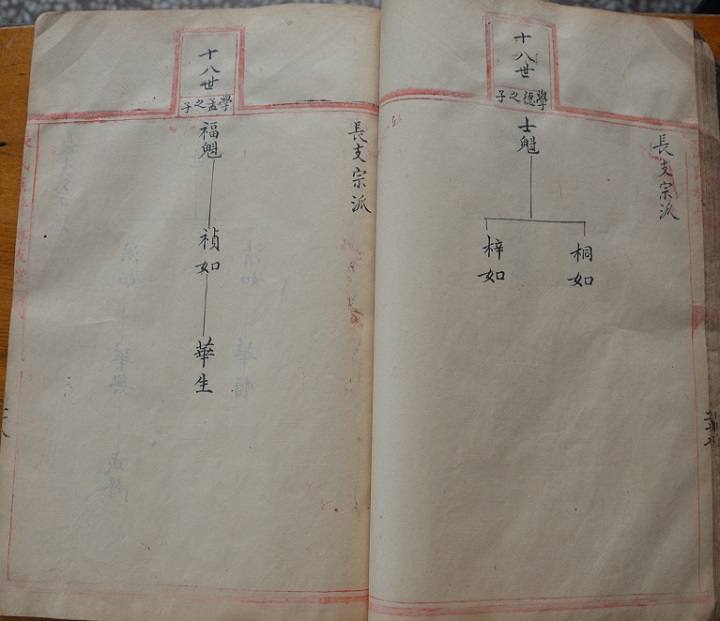 長支宗派
十八世
學德之子
士魁
桐如
梓如
長支宗派
十八世
學孟之子
福魁
禎如
華生